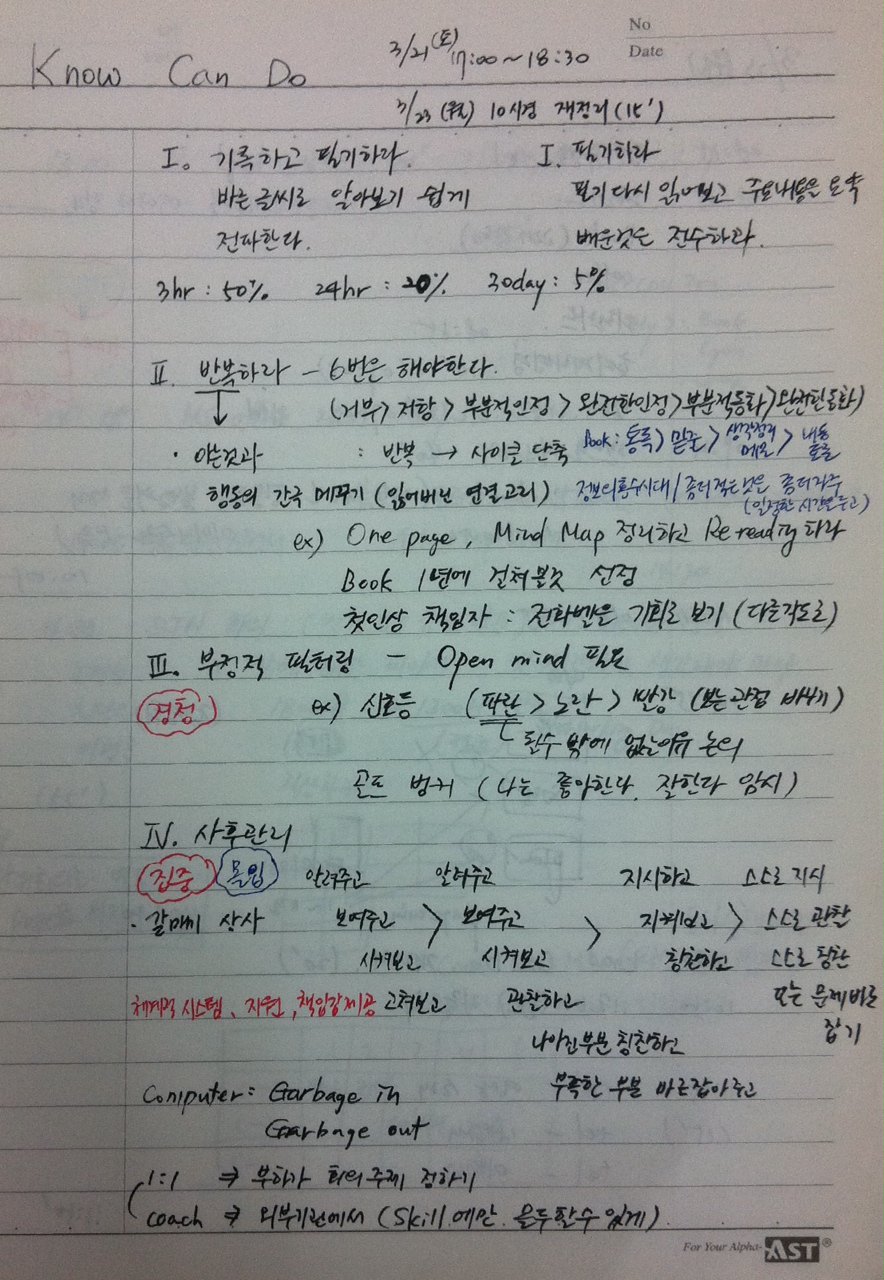 No
Date
Know Can Do 3/21(토) 17:00~18:30
3/23 (월) 10시경 재정리(15')
I。 기록하고 필기하라. I. 필기하라
바른글씨로 알아보기 쉽게 필기 다시 읽어보고 주요내용은 요약
전파한다. 배운것은 전수하라.
3hr : 50% 24hr : 20% 30day : 5%
II. 반복하라 - 6번은 해야한다.
(거부> 저항 > 부분적인정 > 완전한인정>부분적동화>완전한동화)
· 아는것과 : 반복 → 사이클 단축 Book : 통독> 밑줄> 생각정리 메모 > 내용
행동의 간극 메꾸기 (잃어버린 연결고리) 정보의홍수시대/좀더적은것은 좀더자주
(일정한 시간을두고)
ex) One page, Mind Map 정리하고 Re ready 하라
Book 1년에 걸쳐볼것 선정
첫인상 책임자 : 전화벨은 기회로 보기 (다른각도로)
III. 부정적 필터링 - Open mind 필요
경청 ex) 신호등 (파란 > 노란 > 빨강 (보는관점 바꾸기)
될수밖에 없는이유 논의
골프 벙커 (나는 좋아한다. 잘한다 암시)
IV. 사후관리
집중 몰입 알려주고 알려주고 지시하고 스스로 지시
· 갈매기 상사 보여주고 > 보여주고 > 지켜보고 > 스스로 관찰
시켜보고 시켜보고 칭찬하고 스스로 칭찬
체계적 시스템、지원, 책임감제공 고쳐보고 관찰하고 모든 문제바로
나아진부분 칭찬하고 잡기
Computer : Garbage in 부족한 부분 바로잡아주고
Garbage out
1:1 ⇒ 부하가 회의주제 정하기
coach ⇒ 외부기관에서 (Skill 에만 몰두할수 있게)
For Your Alpha- AST®